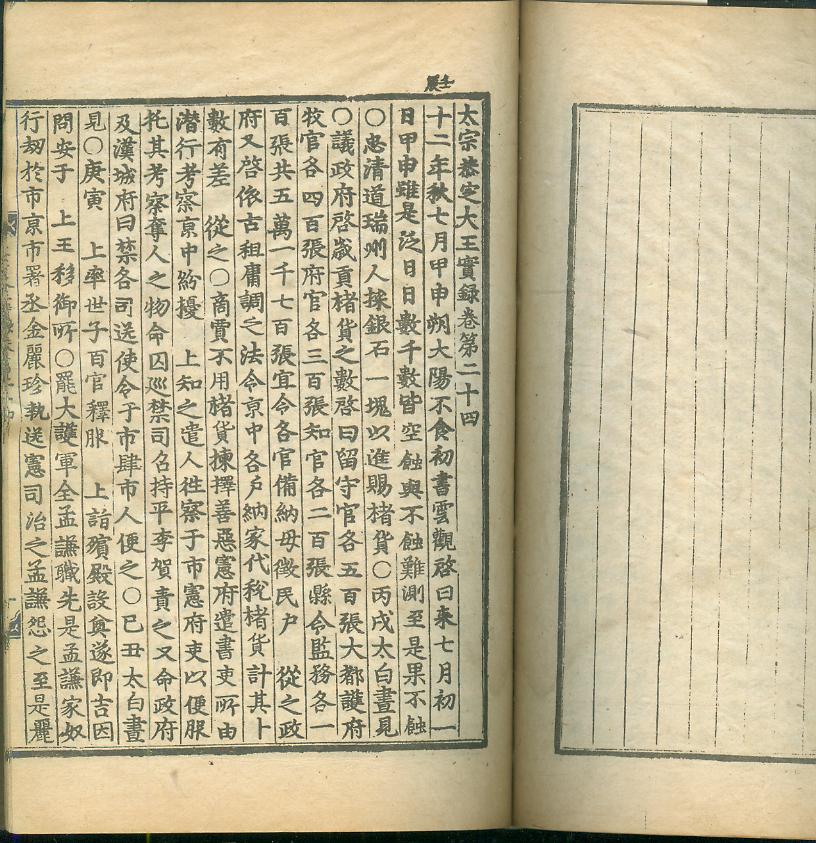 壬辰
太宗恭定大王實錄卷第二十四
十二年秋七月甲申朔大陽不食初書雲觀啓曰來七月初一
日甲申雖是泛日日數千數皆空蝕與不蝕難測至是果不蝕
○忠清道瑞州人採銀石一塊以進賜楮貨○丙戌太白晝見
○議政府啓歲貢楮貨之數啓曰留守官各五百張大都護府
牧官各四百張府官各三百張知官各二百張縣令監務各一
百張共五萬一千七百張宜令各官備納毋徵民戶 從之政
府又啓依古租庸調之法令京中各戶納家代稅楮貨 計其卜
數有差 從之○商賈不用楮貨揀擇善惡憲府遣書吏所由
潛行考察京中紛擾 上知之遣人徃察于市憲府吏以便服
托其考察奪人之物命囚巡禁司召持平李賀責之又命政府
及漢城府曰禁各司送使令于市肆市人便之○已丑太白晝
見○庚寅 上率世子百官釋服 上詣殯殿設奠遂即吉因
問安子 上王移御所○罷大護軍全孟謙職先是孟謙家奴
行刼於市京市署丞金麗珍執送憲司治之孟謙怨之至是麗